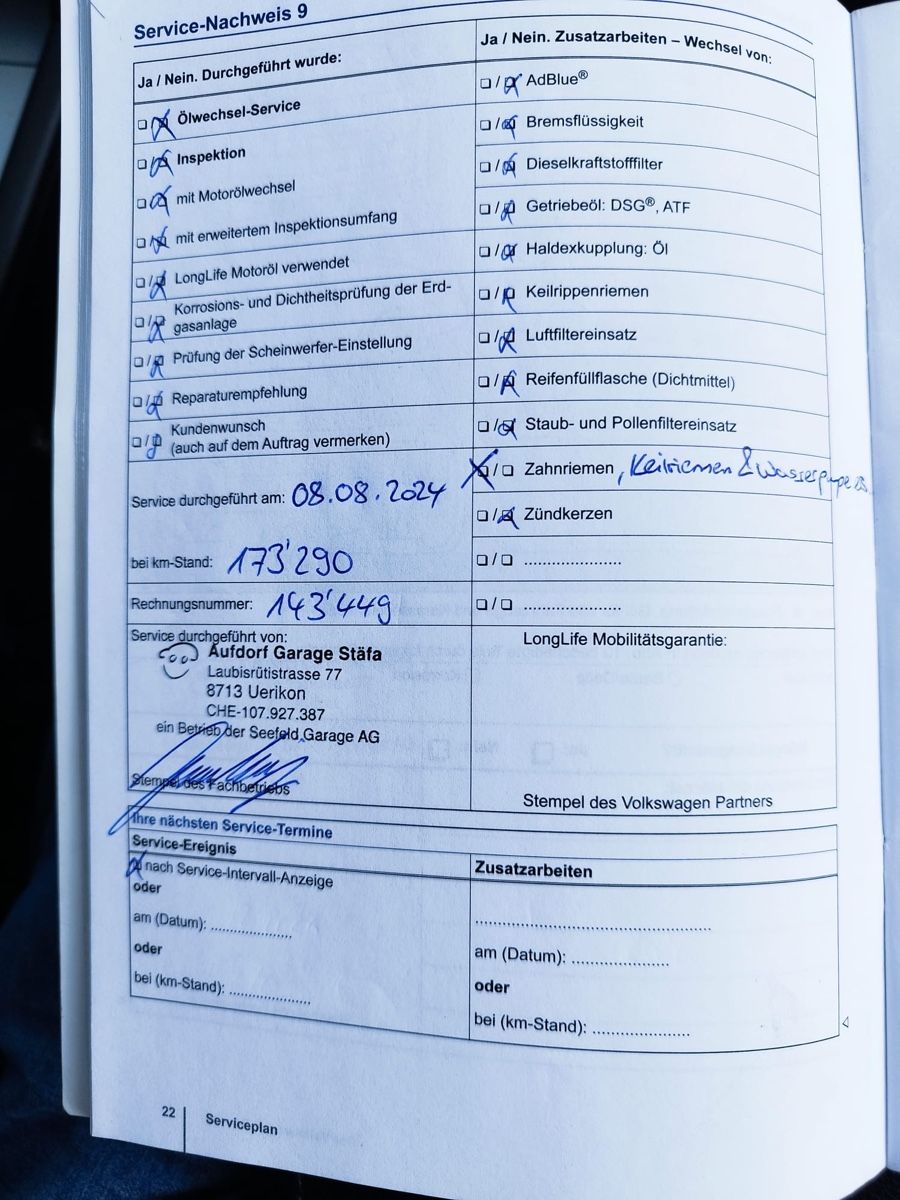 Service-Nachweis 9
Ja / Nein. Durchgeführt wurde:
❑ / ❑ Ölwechsel-Service
❑ / ❑ Inspektion
❑ / ❑ mit Motorölwechsel
❑ / ❑ mit erweitertem Inspektionsumfang
❑ / ❑ LongLife Motoröl verwendet
❑ / ❑ Korrosions- und Dichtheitsprüfung der Erd-
gasanlage
❑ / ❑ Prüfung der Scheinwerfer-Einstellung
❑ / ❑ Reparaturempfehlung
❑ / ❑ Kundenwunsch
(auch auf dem Auftrag vermerken)
Service durchgeführt am: 08.08.2024
bei km-Stand: 173'290
Rechnungsnummer: 143'449
Service durchgeführt von:
Aufdorf Garage Stäfa
Laubisrütistrasse 77
8713 Uerikon
CHE-107.927.387
ein Betrieb der Seefeld Garage AG
Stempel des Fachbetriebs
Ja / Nein. Zusatzarbeiten – Wechsel von:
❑ / ❑ AdBlue®
❑ / ❑ Bremsflüssigkeit
❑ / ❑ Dieselkraftstofffilter
❑ / ❑ Getriebeöl: DSG®, ATF
❑ / ❑ Haldexkupplung: Öl
❑ / ❑ Keilrippenriemen
❑ / ❑ Luftfiltereinsatz
❑ / ❑ Reifenfüllflasche (Dichtmittel)
❑ / ❑ Staub- und Pollenfiltereinsatz
❑ / ❑ Zahnriemen, Keilriemen &
❑ / ❑ Zündkerzen
❑ / ❑ .....................
❑ / ❑ .....................
LongLife Mobilitätsgarantie:
Stempel des Volkswagen Partners
Ihre nächsten Service-Termine
Service-Ereignis
❑ nach Service-Intervall-Anzeige
oder
am (Datum): .....................
oder
bei (km-Stand): .....................
Zusatzarbeiten
.............................................................
am (Datum): .........................
oder
bei (km-Stand): .........................
22
Serviceplan